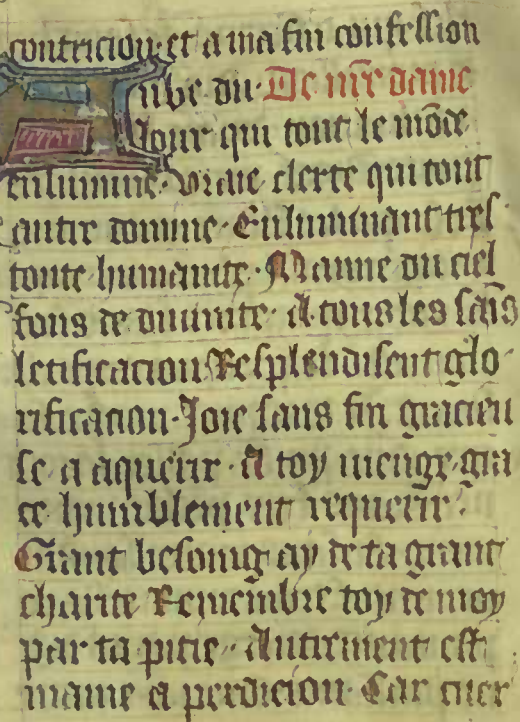 contricion et a ma fin confession
Aube du De nr̄e dame
Jour qui tout le mōde
enlumine. vraie clerte qui tout
autre domine. Enluminant tres
toute humanite. Manne du ciel
fons de diuinite. A tous les saīs
letificacion Resplendisent glo
rificacion. Joie sans fin gracieu
se a aquerir. A toy vienge gra
ce humblement requerir.
Grant besoing ay de ta grant
charite Remembre toy de moy
par ta pitie. Autrement est
mame a perdicion. Car cuer